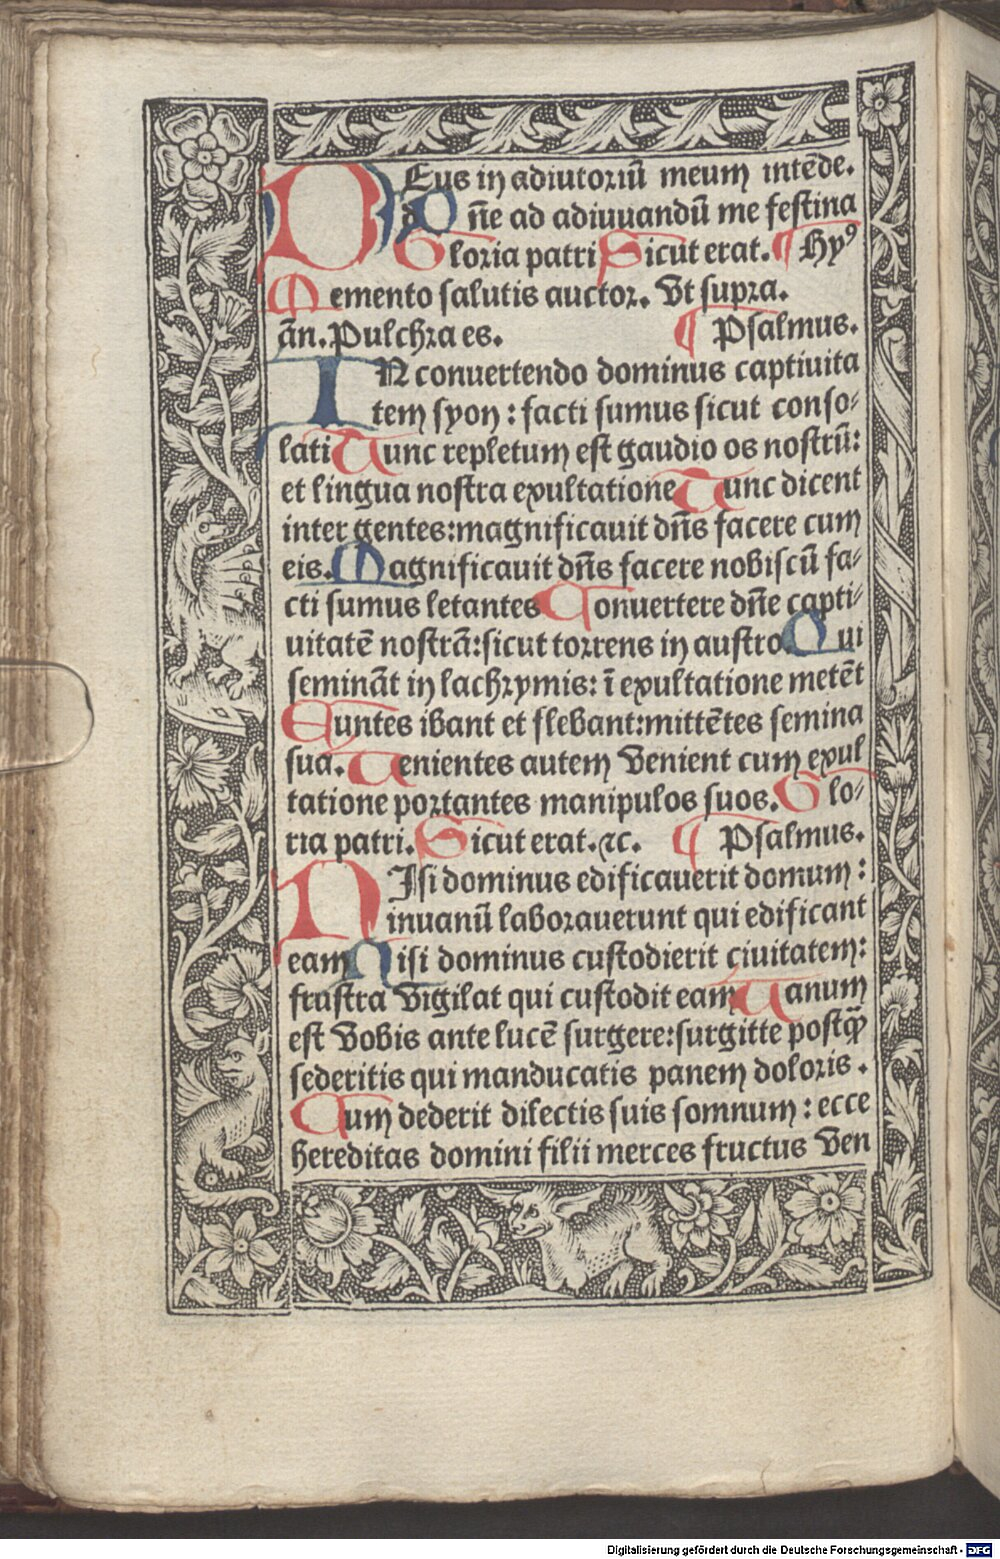 DEus in adiutoriū meum intēde.
Dn̄e ad adiuuandū me festina
Gloria patri Sicut erat. ¶ Hyꝰ
Memento salutis auctor. Vt supra.
ān. Pulchra es. ¶ Psalmus.
IN conuertendo dominus captiuita
tem syon : facti sumus sicut conso⸗
lati Tunc repletum est gaudio os nostrū:
et lingua nostra exultatione Tunc dicent
inter gentes:magnificauit dn̄s facere cum
eis. Magnificauit dn̄s facere nobiscū fa⸗
cti sumus letantes Conuertere dn̄e capti⸗
uitatē nostrā:sicut torrens in austro Qui
semināt in lachrymis: ī exultatione metēt
Euntes ibant et flebant:mittētes semina
sua. Uenientes autem venient cum exul
tatione portantes manipulos suos. Glo⸗
ria patri. Sicut erat. ⁊c. ¶ Psalmus.
NIsi dominus edificauerit domum :
inuanū laborauerunt qui edificant
eam Nisi dominus custodierit ciuitatem:
frustra vigilat qui custodit eam Uanum
est vobis ante lucē surgere:surgitte postꝙ̄
sederitis qui manducatis panem doloris .
Cum dederit dilectis suis somnum : ecce
hereditas domini filii merces fructus ven
Digitalisierung gefördert durch die Deutsche Forschungsgemeinschaft - DFG